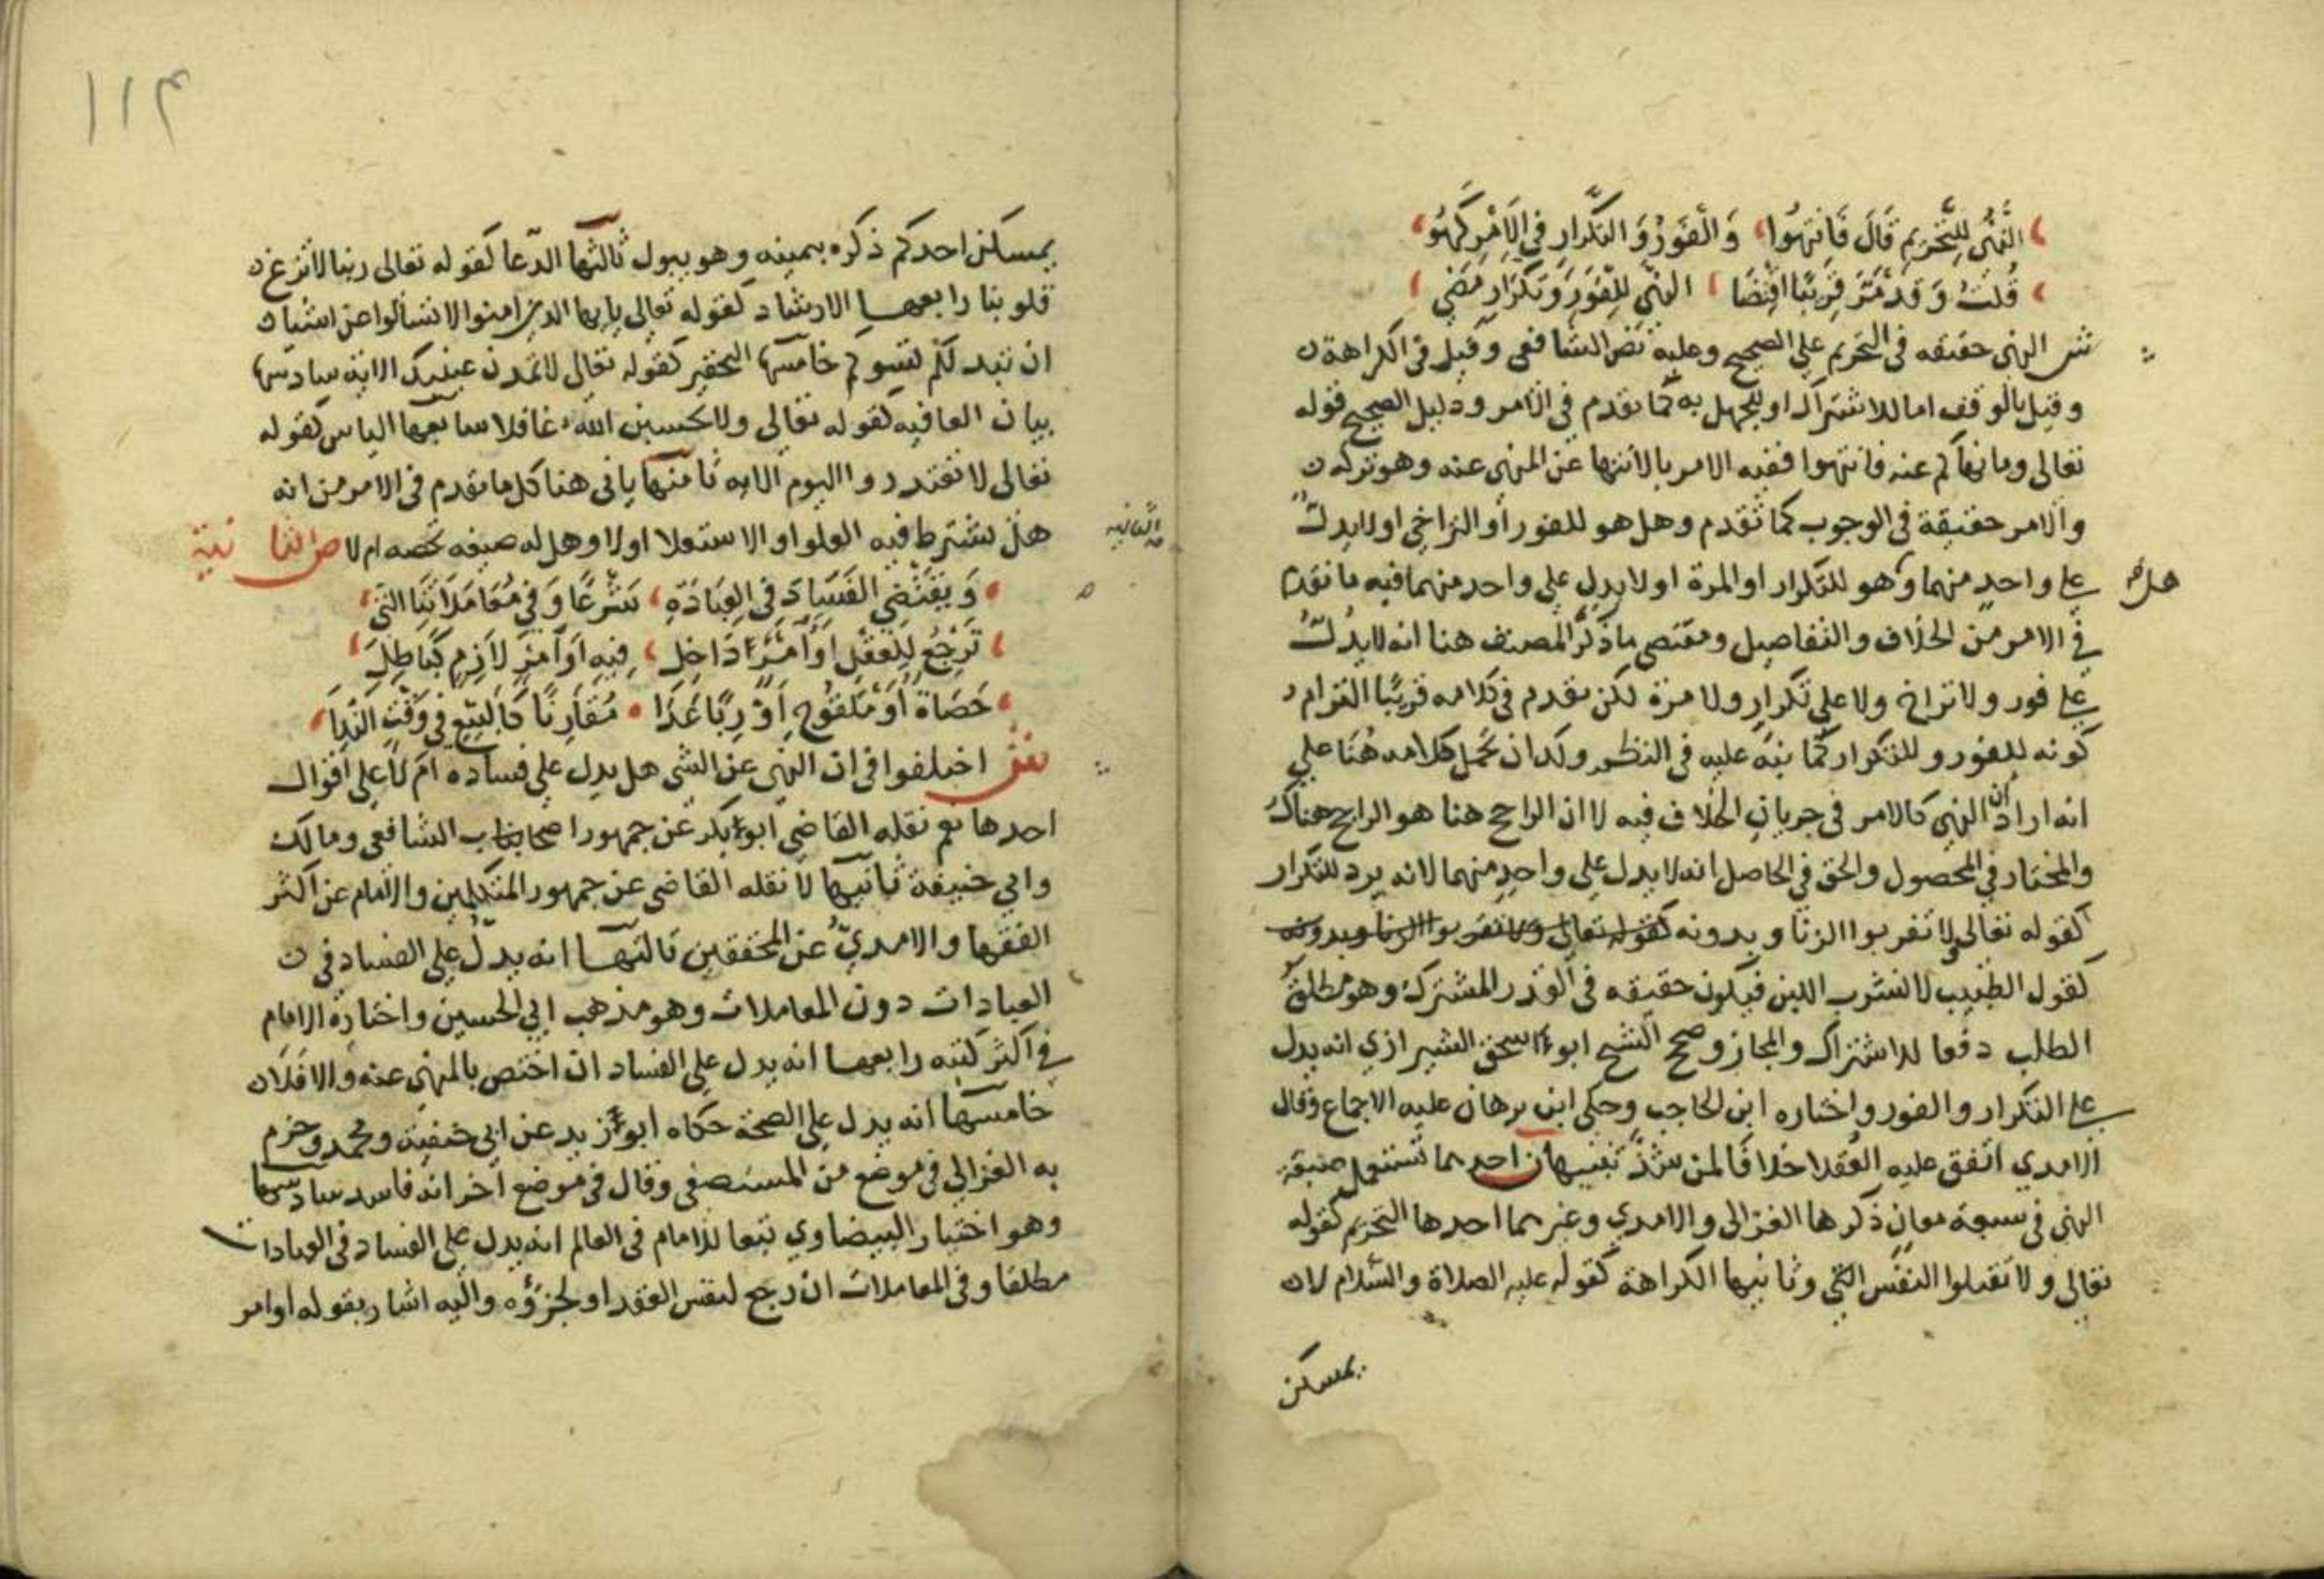 النهي للتحريم قال فانتهوا والفور والتكرار في الامر كهو
قلت وقد مر قريبا اقتضا النهي للفور وتكرار مضي
ش النهي حقيقه في التحريم علي الصحيح وعليه نص الشافعي وقيل في الكراهة
وقيل بالوقف اما للاشتراك او للجهل به كما تقدم في الامر ودليل الصحيح قوله
تعالى وما نهاكم عنه فانتهوا ففيه الامر بالانتها عن المنهي عنه وهو تركه
والامر حقيقة في الوجوب كما تقدم وهل هو للفور أو التراخي او لا يدل
علي واحد منهما وهو للتكرار او المرة او لا يدل علي واحد منهما فيه ما تقدم
هل
في الامر من الخلاف والتفاصيل ومقتضي ما ذكر المصنف هنا انه لا يدل
علي فور ولا تراخ ولا علي تكرار ولا مرة لكن تقدم في كلامه قريبا التزام
كونه للفور وللتكرار كما نبه عليه في النظم ولك ان تحمل كلامه هنا علي
انه اراد ان النهي كالامر في جريان الخلاف فيه لا ان الراجح هنا هو الراجح هناك
والمختار في المحصول والحق في الحاصل انه لا يدل علي واحد منهما لانه يرد للتكرار
كقوله تعالى ولا تقربوا الزنا وبدونه كقوله تعالي ولا تقربوا الزنا وبدونه
كقول الطبيب لا تشرب اللبن فيكون حقيقه في القدر المشترك وهو مطلق
الطلب دفعا للاشتراك والمجاز وصحح الشيخ ابو اسحق الشيرازي انه يدل
علي التكرار والفور واختاره ابن الحاجب وحكى ابن برهان عليه الاجماع وقال
الامدي اتفق عليه العقلا خلافا لمن شذ تنبيهان احدهما تستعمل صيغة
النهي في سبعة معان ذكرها الغزالي والامدي وغيرهما احدها التحريم كقوله
تعالى ولا تقتلوا النفس التي وثانيها الكراهة كقوله عليه الصلاة والسلام لا
يمسكن
١١٤
يمسكن احدكم ذكره بيمينه وهو يبول ثالثها الدعا كقوله تعالى ربنا لا تزغ
قلوبنا رابعها الارشاد كقوله تعالي يا ايها الذين امنوا لا تسألوا عن اشيا
ان تبد لكم تسوكم خامسها التحقير كقوله تعالي لا تمدن عينيك الاية سادسها
بيان العاقبه كقوله تعالي ولا تحسبن الله غافلا سابعها الياس كقوله
تعالى لا تعتذروا اليوم الايه ثامنها ياتي هنا كل ما تقدم في الامر من انه
هل يشترط فيه العلو او الاستعلا اولا وهل له صيغه تخصه ام لا ص الثانية
الثانيه
ويقتضي الفساد في العبادة شرعا وفي معاملاتنا التي
ترجع للعقل او امر داخل فيه او امر لازم كباطل
حصاة أو ملقوح أو ربا غدا مقارنا كالبيع في وقت الندا
ش اختلفوا في ان النهي عن الشي هل يدل علي فساده ام لا علي اقوال
احدها نعم نقله القاضي ابو بكر عن جمهور اصحاب الشافعي ومالك
وابي حنيفة ثانيها لا نقله القاضي عن جمهور المتكلمين والامام عن اكثر
الفقها والامدي عن المحققين ثالثها انه يدل علي الفساد في
العبادات دون المعاملات وهو مذهب ابي الحسين واختاره الامام
في اكثر كتبه رابعها انه يدل علي الفساد ان اختص بالمنهي عنه والا فلا
خامسها انه يدل علي الصحة حكاه ابو زيد عن ابي حنفية ومحمد وجزم
به الغزالي في موضع من المستصفي وقال في موضع اخر انه فاسد سادسها
وهو اختيار البيضاوي تبعا للامام في العالم انه يدل علي الفساد في العبادات
مطلقا وفي المعاملات ان رجع لنفس العقد او لجزؤه واليه اشار بقوله او امر